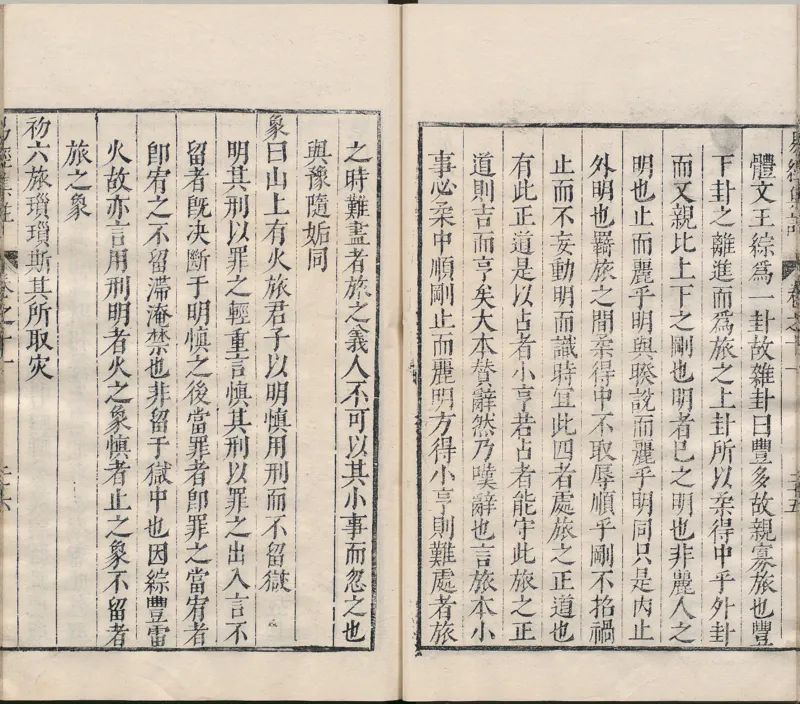 體文王綜為一卦故雜卦曰豐多故親寡旅也豐
下卦之離進而為旅之上卦所以柔得中乎外卦
而又親比上下之剛也明者己之明也非麗人之
明也止而麗乎明與睽說而麗乎明同只是內止
外明也羇旅之間柔得中不取辱順乎剛不招禍
止而不妄動明而識時宜此四者處旅之正道也
有此正道是以占者小亨若占者能守此旅之正
道則吉而亨矣大本贊辭然乃嘆辭也言旅本小
事必柔中順剛止而麗明方得小亨則難處者旅
之時難盡者旅之義人不可以其小事而忽之也
與豫隨姤同
象曰山上有火旅君子以明慎用刑而不留獄
明其刑以罪之輕重言慎其刑以罪之出入言不
留者旣決斷于明慎之後當罪者卽罪之當宥者
卽宥之不留滯淹禁也非留于獄中也因綜豐雷
火故亦言用刑明者火之象慎者止之象不留者
旅之象
初六旅瑣瑣斯其所取灾